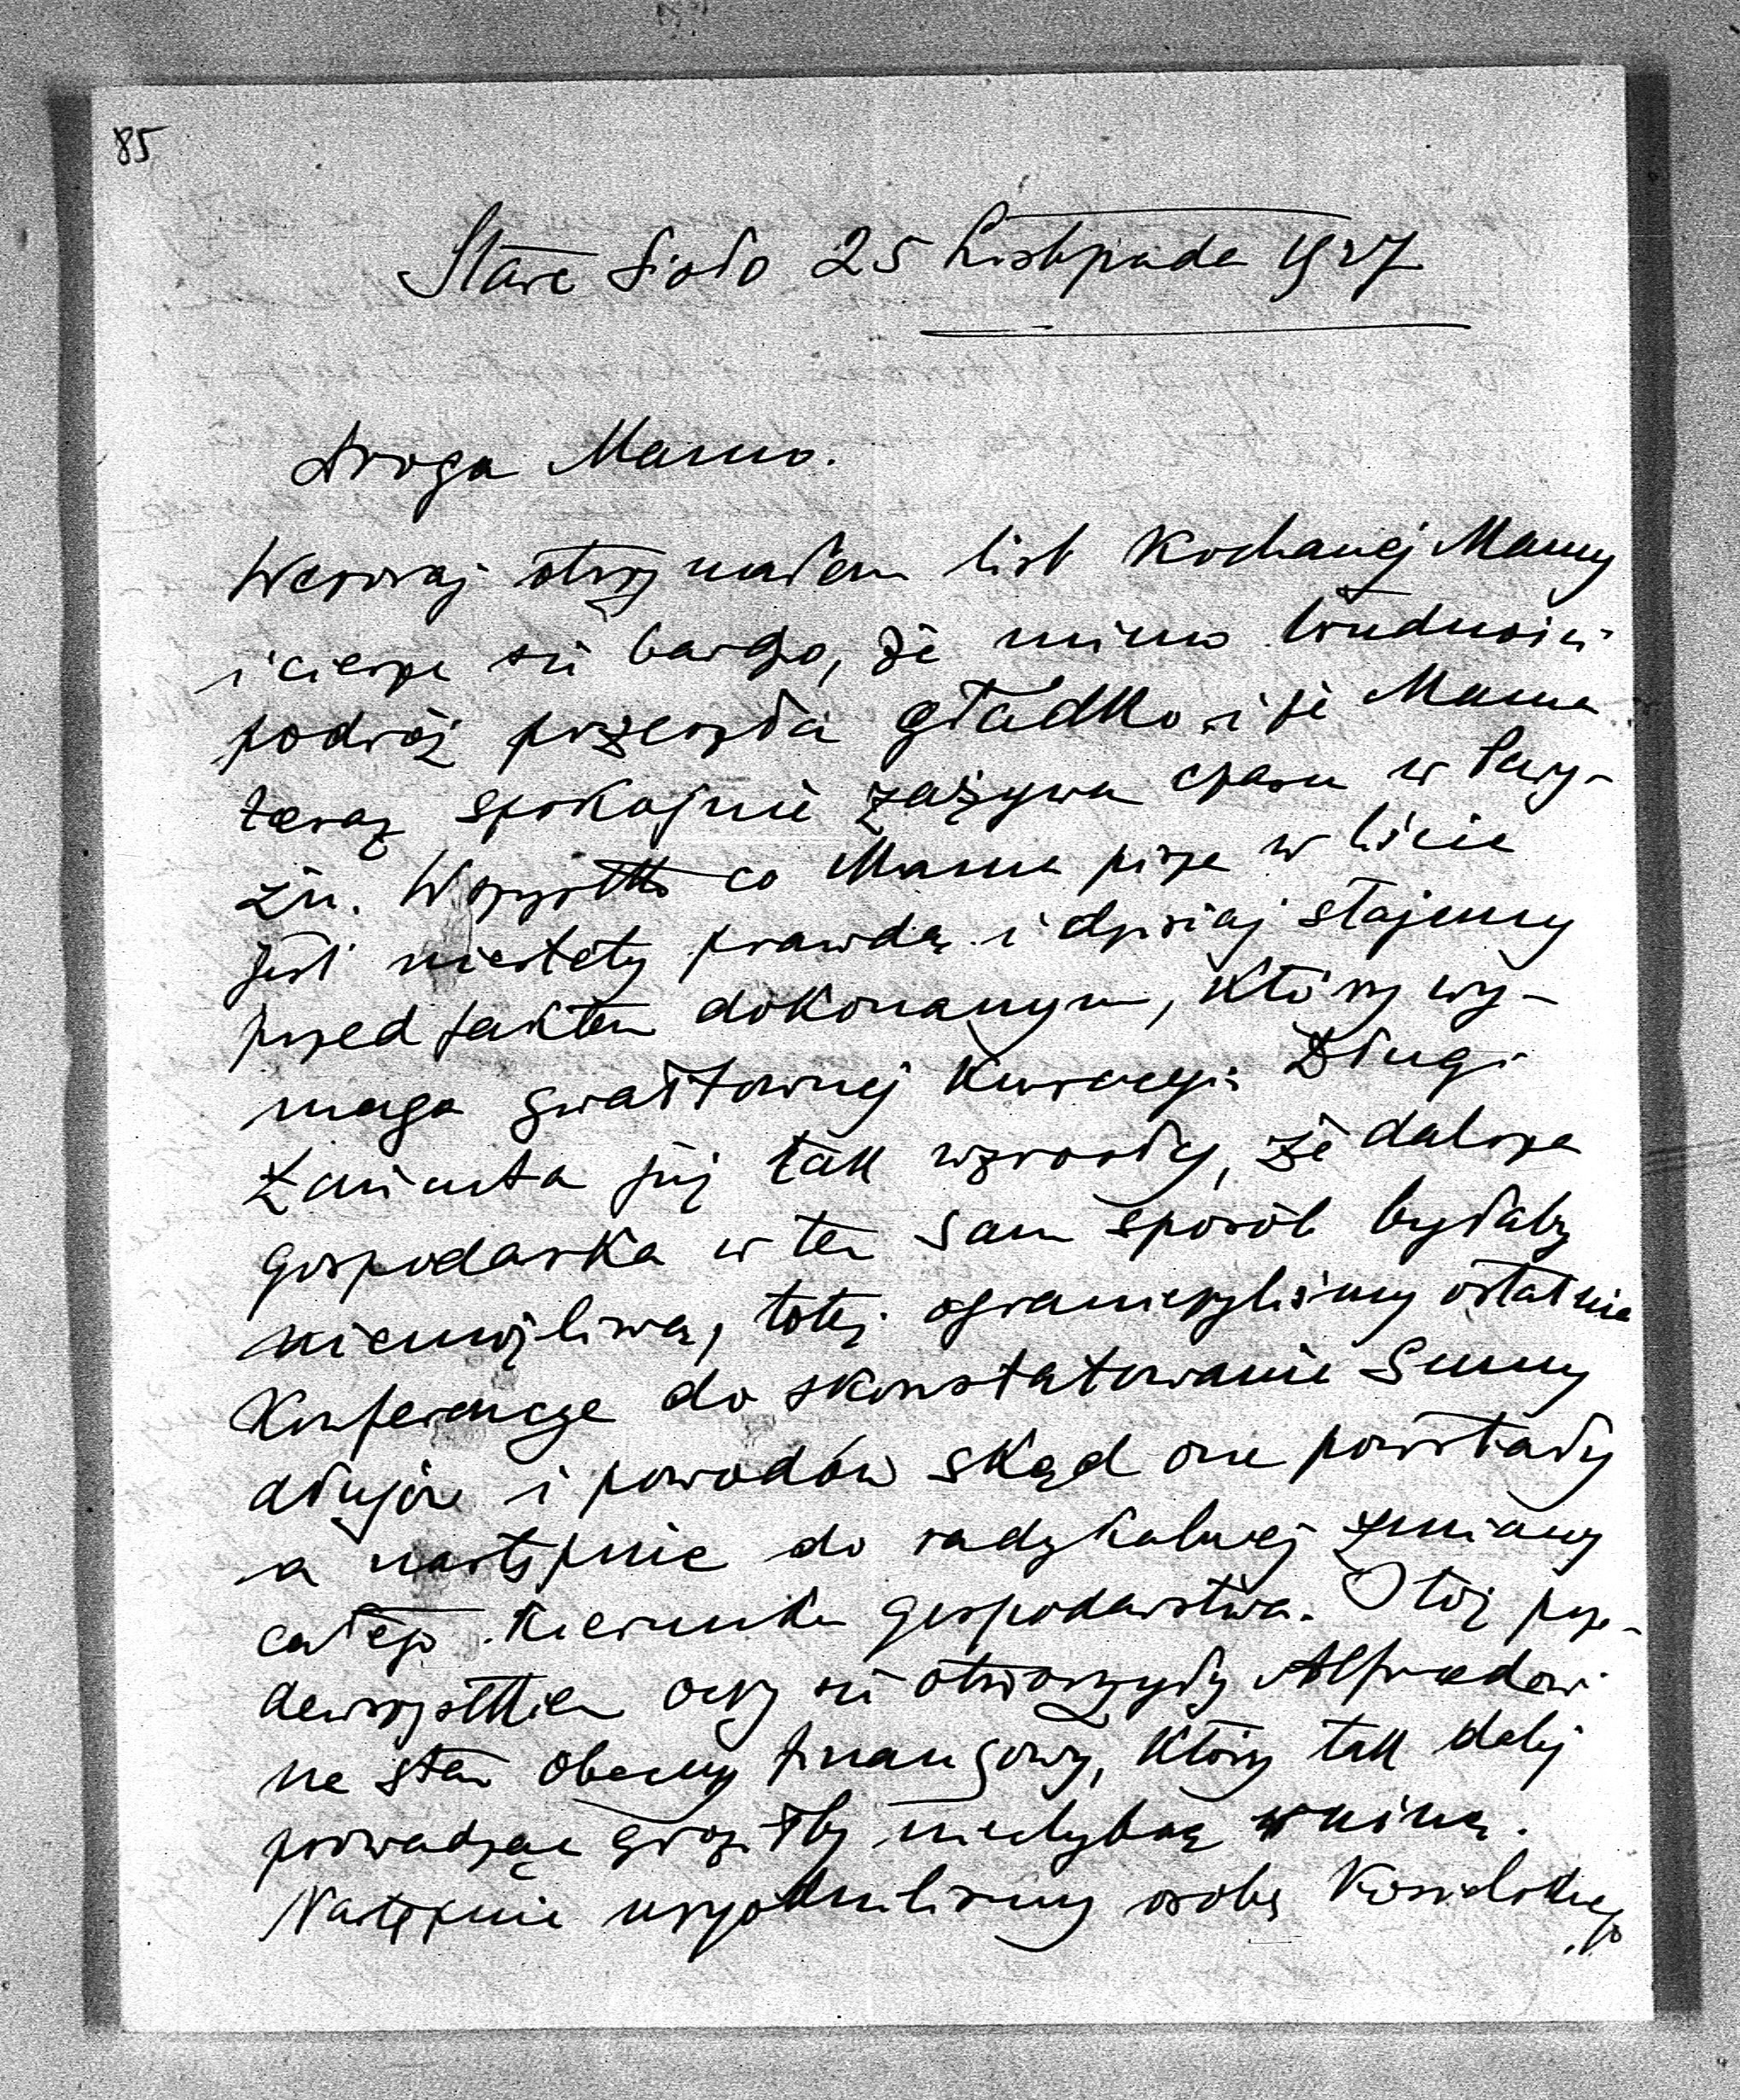 85
Stare Sioło 25 Listopada 1927
Droga Mamo.
Wczoraj otrzymałem list Kochanej Mamy
i cieszę się bardzo, że mimo trudności
podróż przeszła gładko i że Mama
teraz spokojnie zażywa czasu w Pary-
żu. Wszystko co Mama pisze w liście
jest niestety prawdą i dzisiaj stajemy
przed faktem dokonanym, który wy-
maga gwałtownej kuracyi. Długi
Łańcuta już tak wzrosły, że dalsza
gospodarka w ten sam sposób byłaby
niemożliwą, toteż ograniczyliśmy ostatnie
Konferencje do skonstatowania Sumy
długów i powodów skąd one powstały
a następnie do radykalnej zmiany
całego kierunku gospodarstwa. Otóż prze-
dewszystkiem oczy się otworzyły Alfredowi
na stan obecny finansowy, który tak dalej
prowadząc groziłby niechybną ruiną.
Następnie osobę